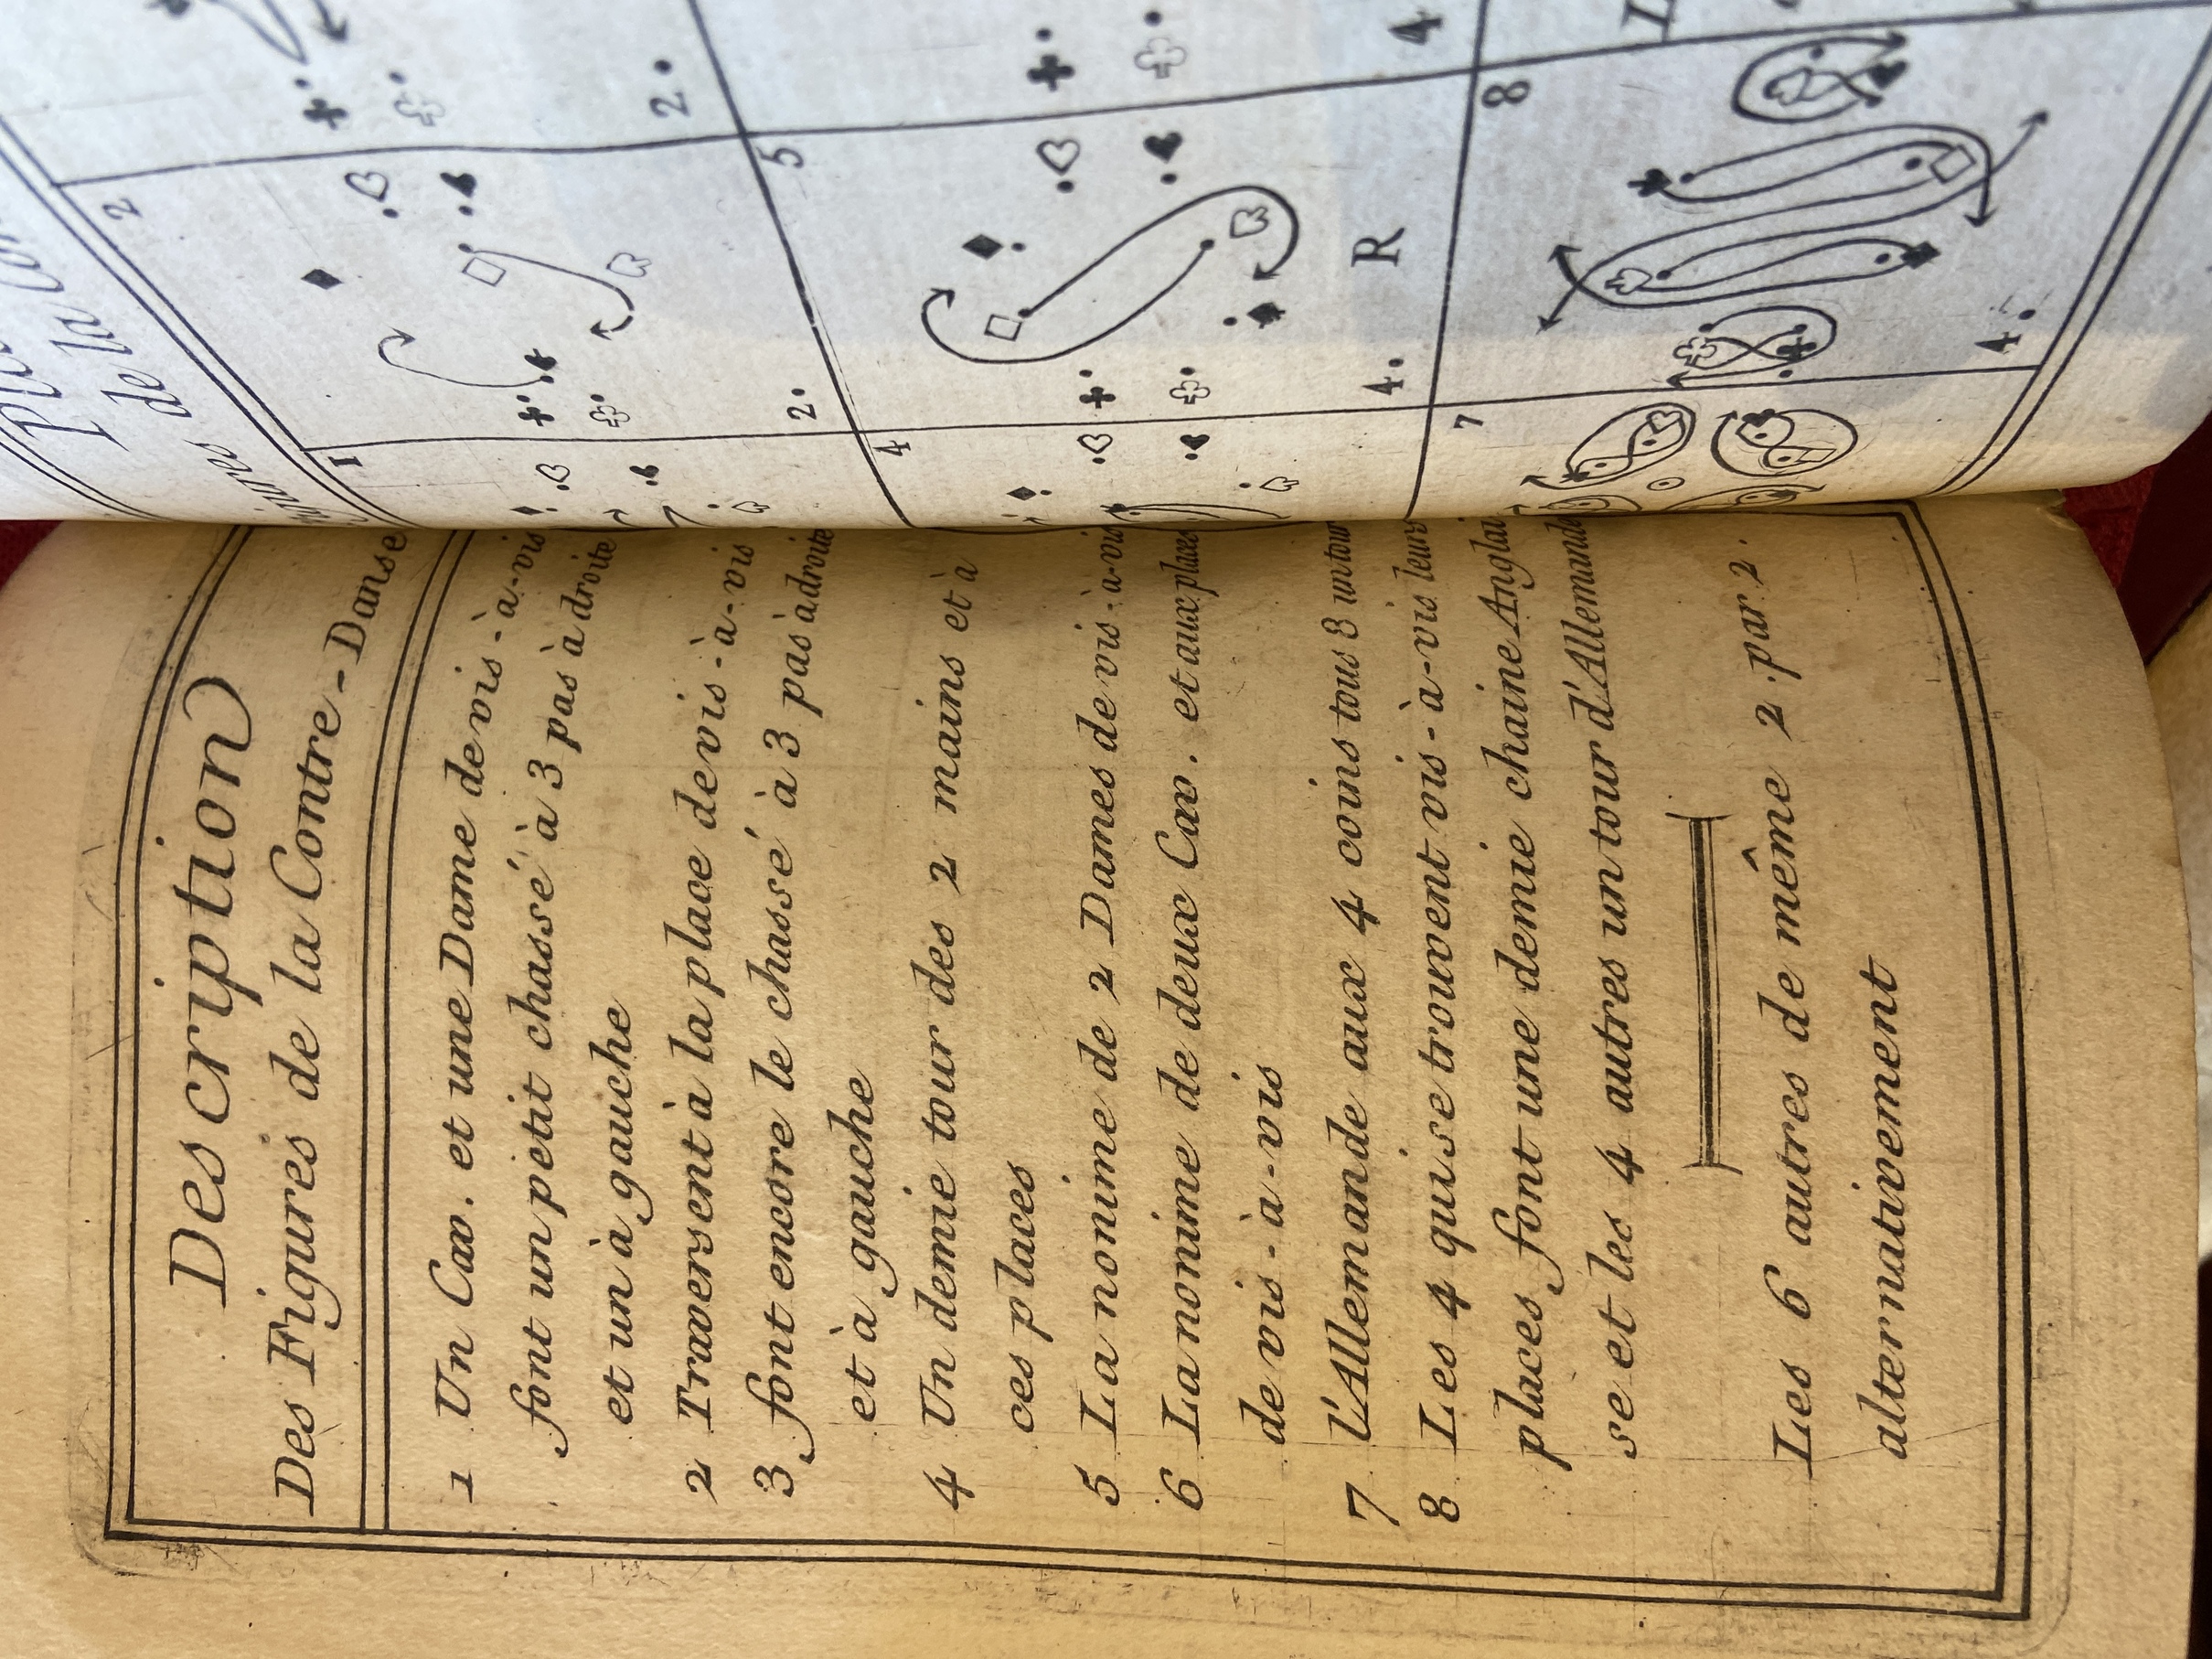 Description
Des Figures de la Contre-Danse
1 Un Cav. et une Dame de vis-à-vis
font un petit chassé à 3 pas à droite
et un à gauche
2 Traversent à la place de vis-à-vis
3 font encore le chassé à 3 pas à droite
et à gauche
4 Un demie tour des 2 mains et à
ces places
5 La nonime de 2 Dames de vis-à-vis
6 La nonime de deux Cav. et aux places
de vis-à-vis
7 L'Allemande aux 4 coins tous 8 un tour
8 Les 4 qui se trouvent vis-à-vis leurs
places font une demie chaine Anglai
se et les 4 autres un tour d'Allemande
Les 6 autres de même 2 par 2.
alternativement
de la
1
2
2.
2.
4
5
4.
R
4
7
8
4.